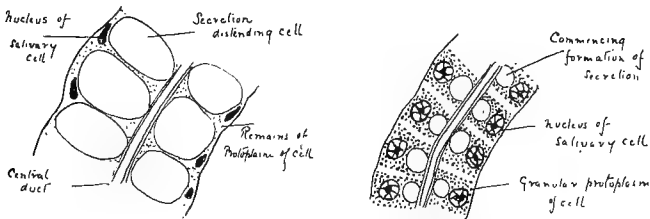 Nucleus of
Salivary
Cell
Secretion
distending cell
Remains of
Protoplasm of cell
Central
duct
Commencing
formation of
secretion
nucleus of
Salivary cell
Granular protoplasm
of cell